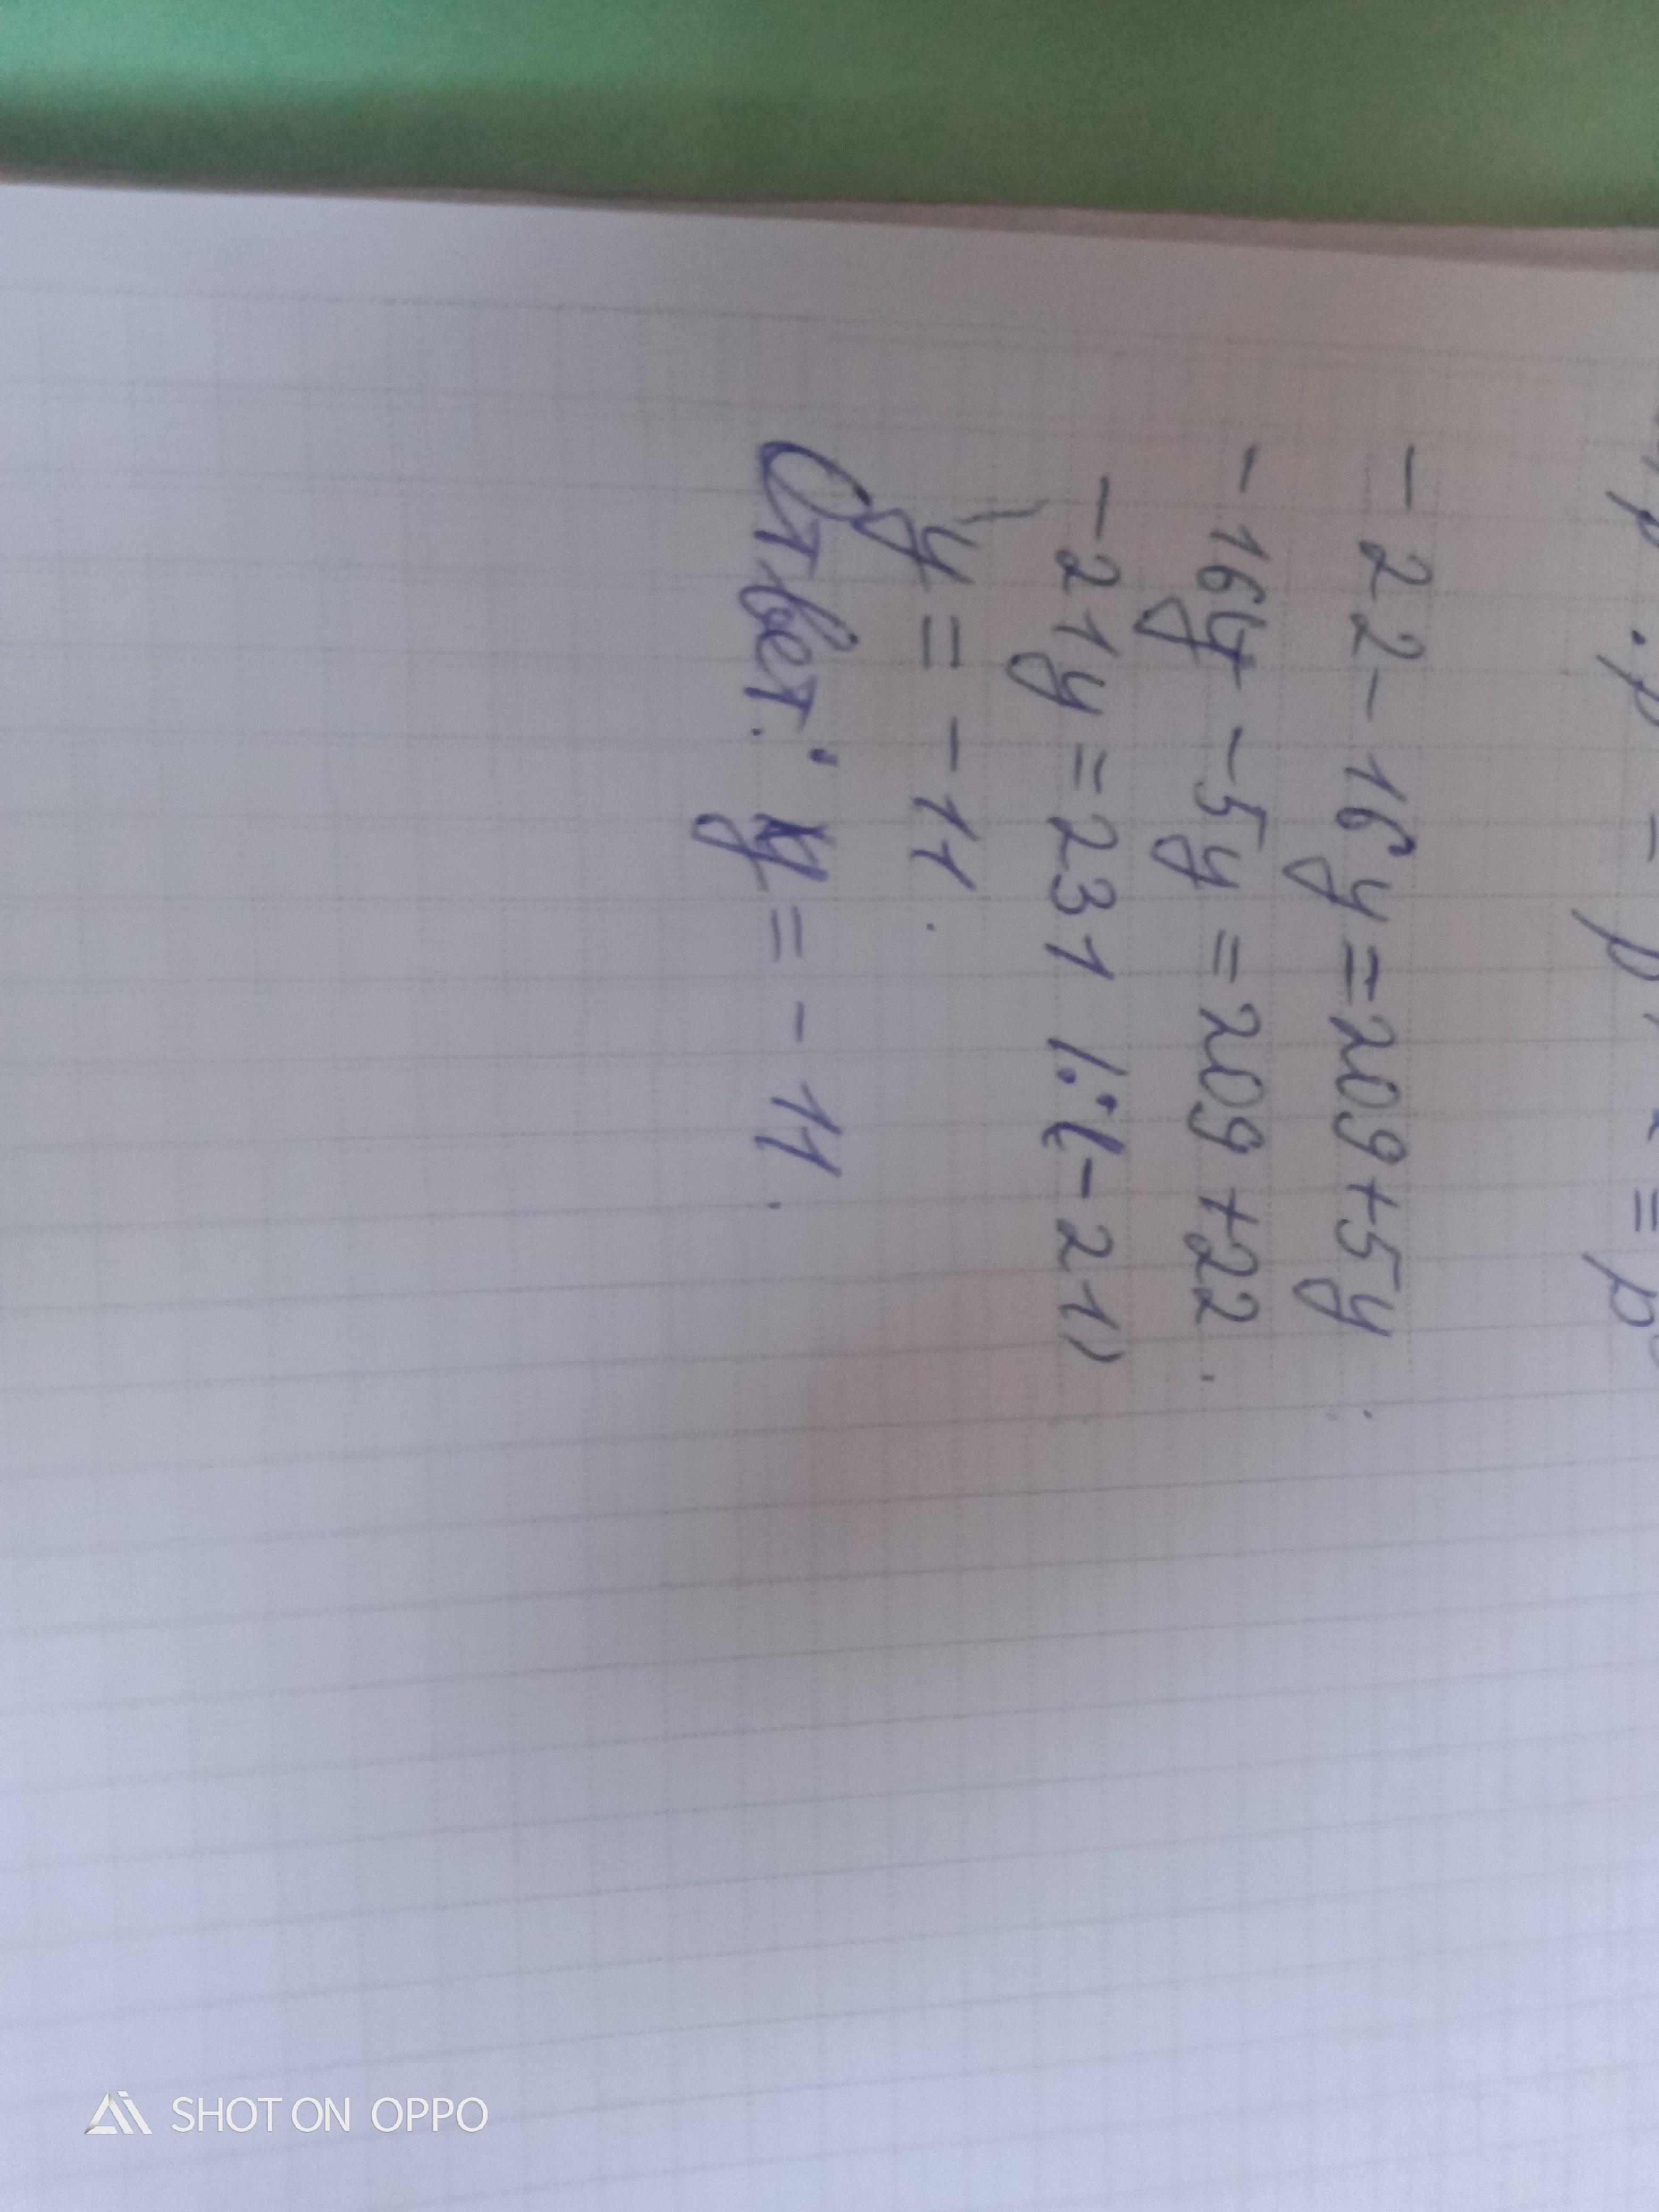 - 22 - 16y = 209 + 5y
- 16y - 5y = 209 + 22.
- 21y = 231 |:(-21)
y = - 11.
Ответ: y = - 11.
SHOT ON OPPO